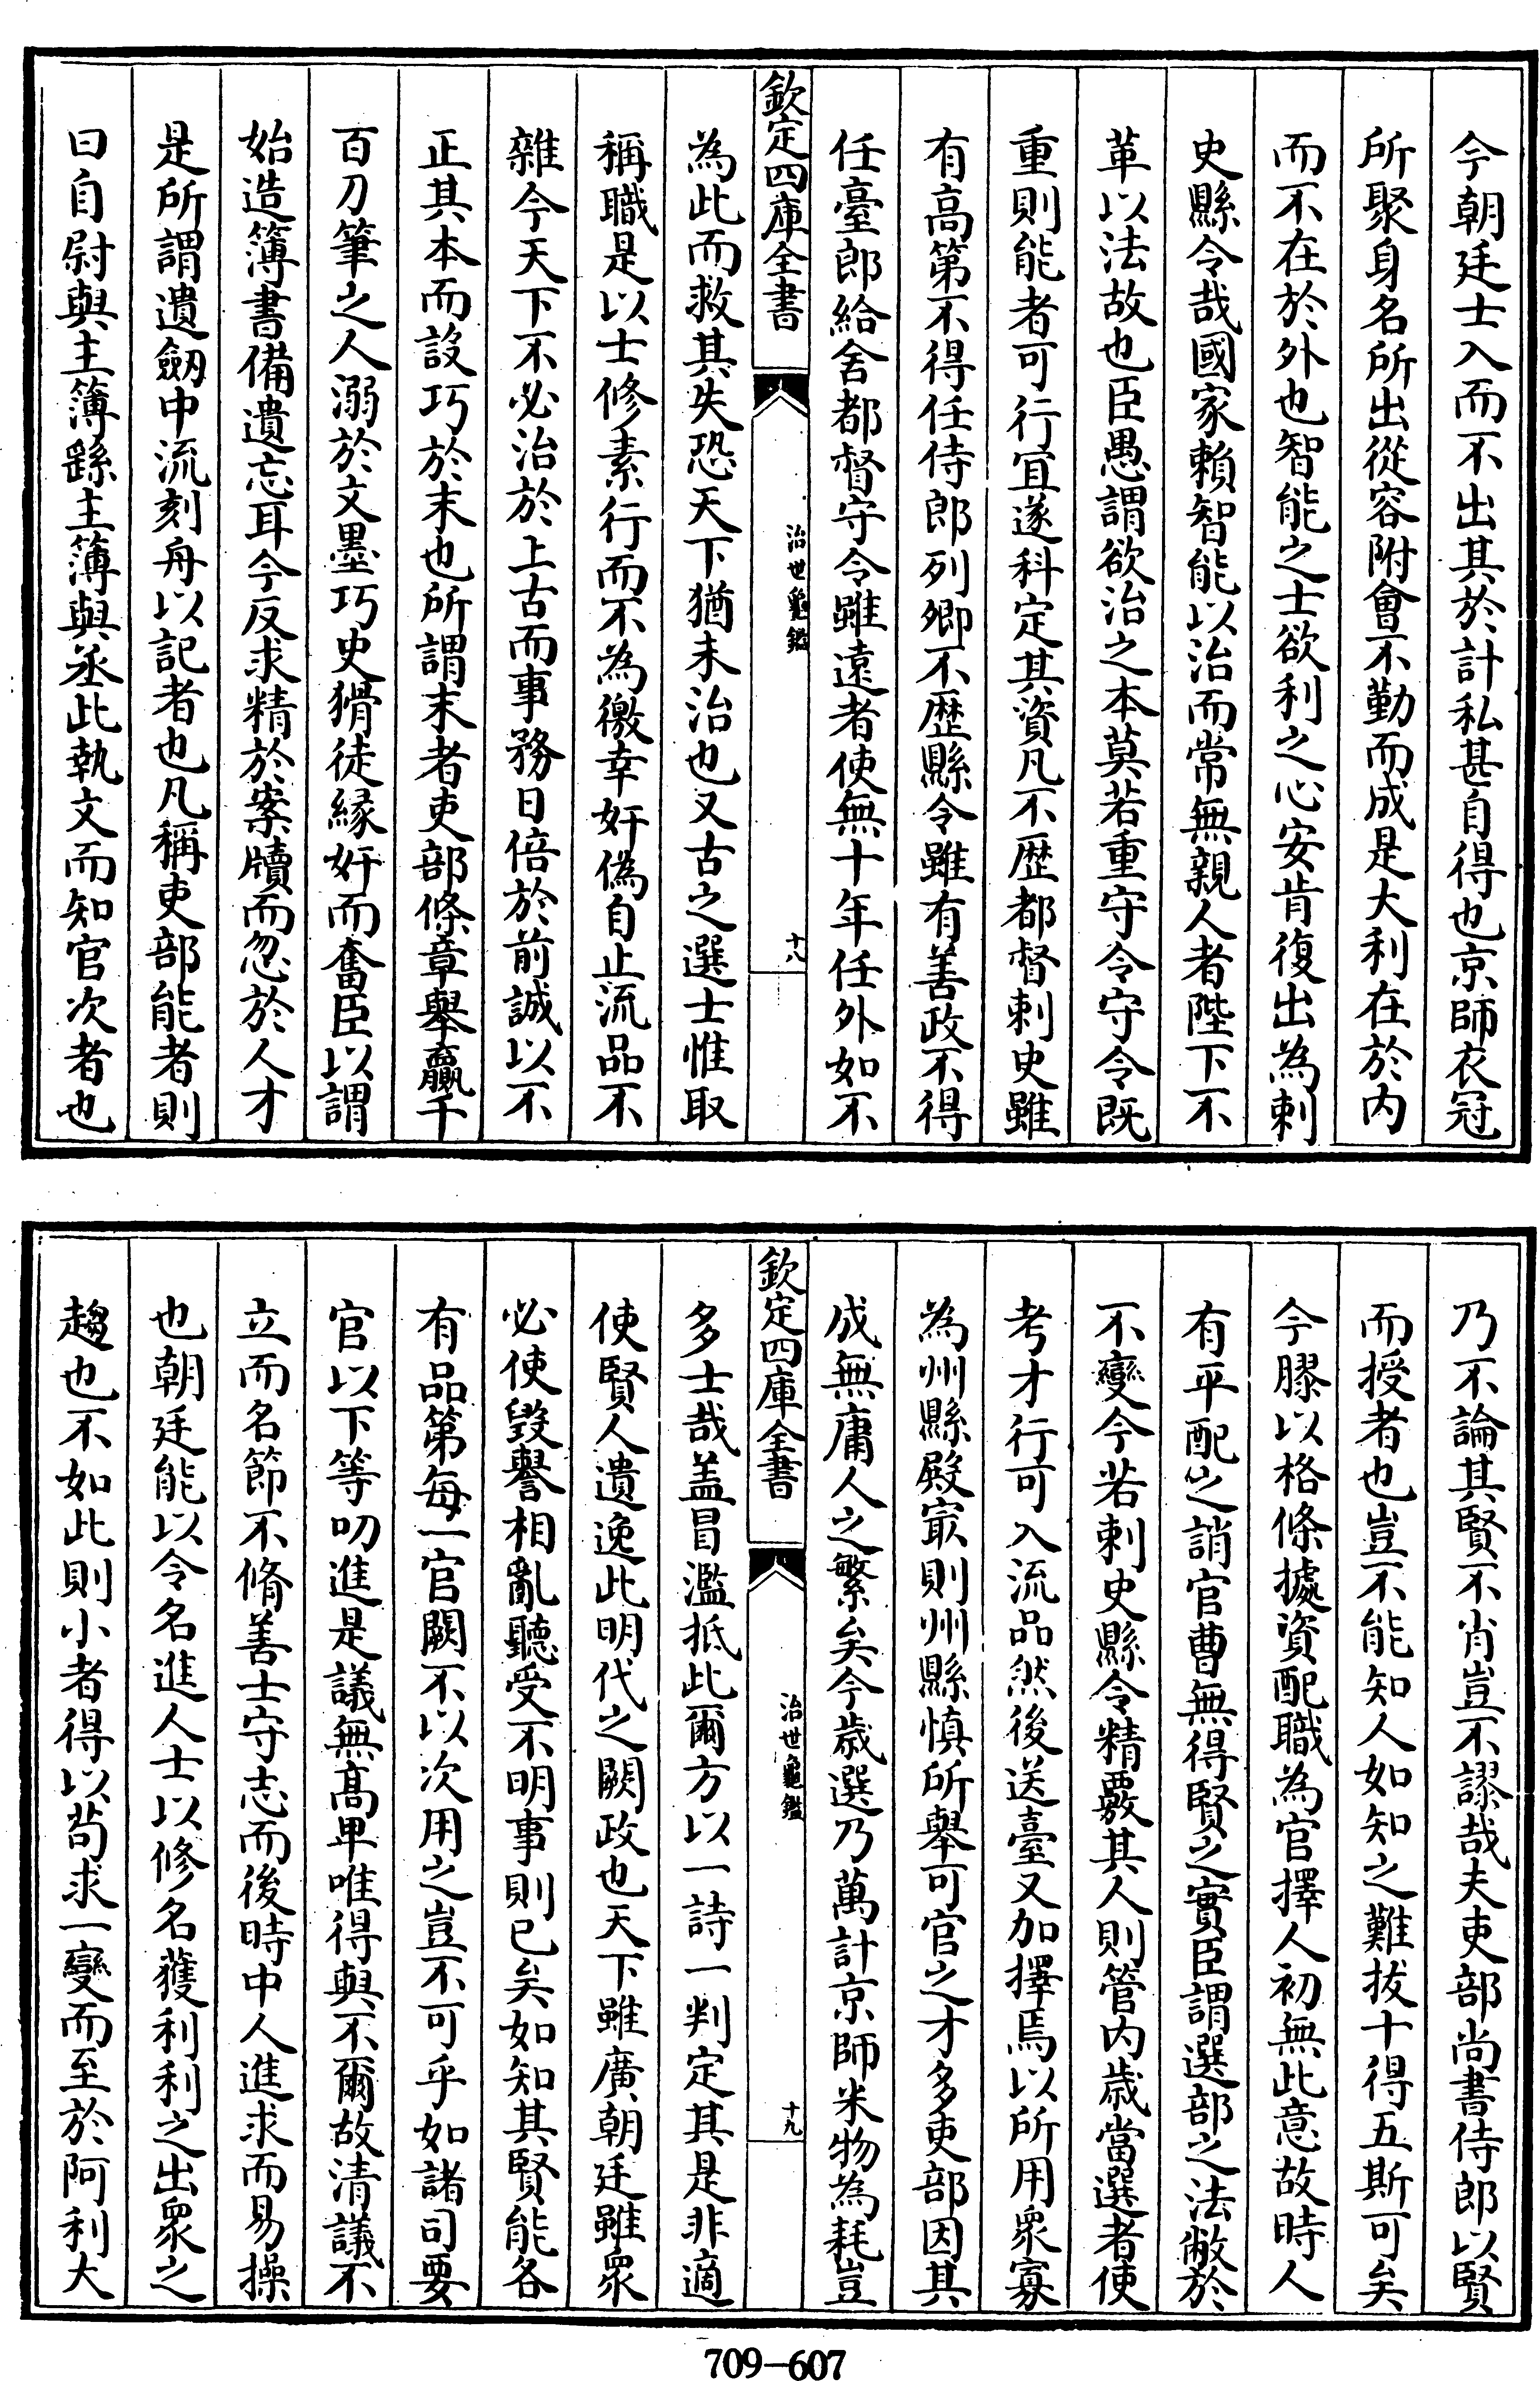 今朝廷士入而不出其於計私甚自得也京師衣冠
所聚身名所出從容附會不勤而成是大利在於内
而不在於外也智能之士欲利之心安肯復出為刺
史縣令哉國家賴智能以治而常無親人者陛下不
革以法故也臣愚謂欲治之本莫若重守令守令既
重則能者可行宜遂科定其資凡不歴都督刺史雖
有高第不得任侍郎列卿不歴縣令雖有善政不得
任臺郎給舍都督守令雖遠者使無十年任外如不
欽定四庫全書
治世龜鑑
十八
為此而救其失恐天下猶未治也又古之選士惟取
稱職是以士修素行而不為徼幸奸偽自止流品不
雜今天下不必治於上古而事務日倍於前誠以不
正其本而設巧於末也所謂末者吏部條章舉贏千
百刀筆之人溺於文墨巧史猾徒緣奸而奮臣以謂
始造簿書備遺忘耳今反求精於案牘而忽於人才
是所謂遺劒中流刻舟以記者也凡稱吏部能者則
曰自尉與主簿繇主簿與丞此執文而知官次者也
乃不論其賢不肖豈不謬哉夫吏部尚書侍郎以賢
而授者也豈不能知人如知之難拔十得五斯可矣
今膠以格條據資配職為官擇人初無此意故時人
有平配之誚官曹無得賢之實臣謂選部之法敝於
不變今若刺史縣令精覈其人則管内歲當選者使
考才行可入流品然後送臺又加擇焉以所用衆寡
為州縣殿㝡則州縣慎所舉可官之才多吏部因其
成無庸人之繁矣今歲選乃萬計京師米物為耗豈
欽定四庫全書
治世龜鑑
十九
多士哉盖冒濫抵此爾方以一詩一判定其是非適
使賢人遺逸此明代之闕政也天下雖廣朝廷雖衆
必使毀譽相亂聽受不明事則已矣如知其賢能各
有品第每一官闕不以次用之豈不可乎如諸司要
官以下等叨進是議無高卑唯得與不爾故清議不
立而名節不脩善士守志而後時中人進求而易操
也朝廷能以令名進人士以修名獲利利之出衆之
趨也不如此則小者得以苟求一變而至於阿利大
709—607